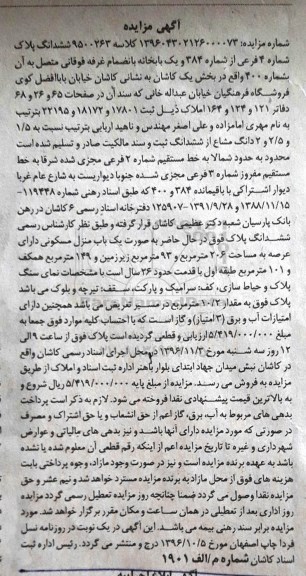 آگهی مزایده
شماره مزایده: ۱۳۹۶۰۴۳۰۲۱۲۶۰۰۰۰۷۳ کلاسه ۹۵۰۰۲۶۳ ششدانگ پلاک
شماره ۴ فرعی از شماره ۳۸۴ و یک بابخانه بانضمام غرفه فوقانی متصل به آن
بشماره ۴۰۰ واقع در بخش یک کاشان به نشانی کاشان خیابان باباافضل کوی
فروشگاه فرهنگیان خیابان عبداله خانی که سند آن در صفحات ۶۵ و ۲۶ و ۶۸
دفاتر ۱۲۱ و ۱۲۴ و ۱۶۴ املاک ذیل ثبت ۱۷۸۰۱ و ۱۸۱۷۲ و ۲۲۱۹۵ بترتیب
به نام مهری امامزاده و علی اصغر مهندس و ناهید اربابی بترتیب نسبت به ۱/۵
و ۲/۵ و ۲ دانگ مشاع از ششدانگ ثبت و سند مالکیت صادر و تسلیم شده است
محدود به حدود شمالا به خط مستقیم شماره ۲ فرعی مجزی شده شرقا به خط
مستقیم مفروز شماره ۳ فرعی مجزی شده جنوبا دیواریست به شارع عام غربا
دیوار اشتراکی با باقیمانده ۳۸۴ و ۴۰۰ که طبق اسناد رهنی شماره ۱۱۹۴۴۸-
۱۳۸۸/۱۱/۱۵ و ۱۳۹۱/۹/۲۸-۱۲۵۹۰۷ دفترخانه اسناد رسمی ۶ کاشان در رهن
بانک پارسیان شعبه دکتر عظیمی کاشان قرار گرفته و طبق نظر کارشناس رسمی
ششدانگ پلاک فوق در حال حاضر به صورت یک باب منزل مسکونی دارای
عرصه به مساحت ۲۰۶ مترمربع و ۹۳ مترمربع زیرزمین و ۱۴۹ مترمربع همکف
و ۱۰۱ مترمربع طبقه اول با قدمت حدود ۲۶ سال است با مشخصات نمای سنگ
پلاک و حیاط سازی، کف: سرامیک و پارکت، سقف: تیرچه و بلوک می باشد
پلاک فوق به مقدار ۱۰/۲ مترمربع در مسیر تعریض می باشد همچنین دارای
امتیازات آب و برق (۳ امتیاز) و گاز است که با احتساب کلیه موارد فوق جمعا به
مبلغ ۵/۴۱۹/۰۰۰/۰۰۰ ارزیابی و قطعی گردیده است پلاک فوق از ساعت ۹ الی
۱۲ روز سه شنبه مورخ ۱۳۹۶/۱۱/۳ در محل اجرای اسناد رسمی کاشان واقع
در کاشان نبش میدان جهاد ابتدای بلوار باهنر اداره ثبت اسناد و املاک از طریق
مزایده به فروش می رسد. مزایده از مبلغ پایه ۵/۴۱۹/۰۰۰/۰۰۰ ریال شروع و
به بالاترین قیمت پیشنهادی نقدا فروخته می شود. لازم به ذکر است پرداخت
بدهی های مربوط به آب، برق، گاز اعم از حق انشعاب و یا حق اشتراک و مصرف
در صورتی که مورد مزایده دارای آنها باشد و نیز بدهی های مالیاتی و عوارض
شهرداری و غیره تا تاریخ مزایده اعم از اینکه رقم قطعی آن معلوم شده یا نشده
باشد به عهده برنده مزایده است و نیز در صورت وجود مازاد، وجوه پرداختی بابت
هزینه های فوق از محل مازاد به برنده مزایده مسترد خواهد شد و نیم عشر و حق
مزایده نقدا وصول می گردد ضمنا چنانچه روز مزایده تعطیل رسمی گردد مزایده
روز اداری بعد از تعطیلی در همان ساعت و مکان مقرر برگزار خواهد شد. مورد
مزایده برابر سند رهنی بیمه می باشد. این آگهی در یک نوبت در روزنامه نسل
فردا چاپ اصفهان مورخ ۱۳۹۶/۱۰/۵ درج و منتشر می گردد. رئیس اداره ثبت
اسناد کاشان شماره م/الف ۱۹۰۱